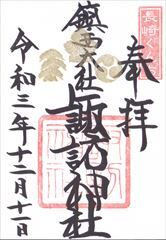 奉拝
長崎くんち
鎮西大社
諏訪神社
令和三年十二月十一日